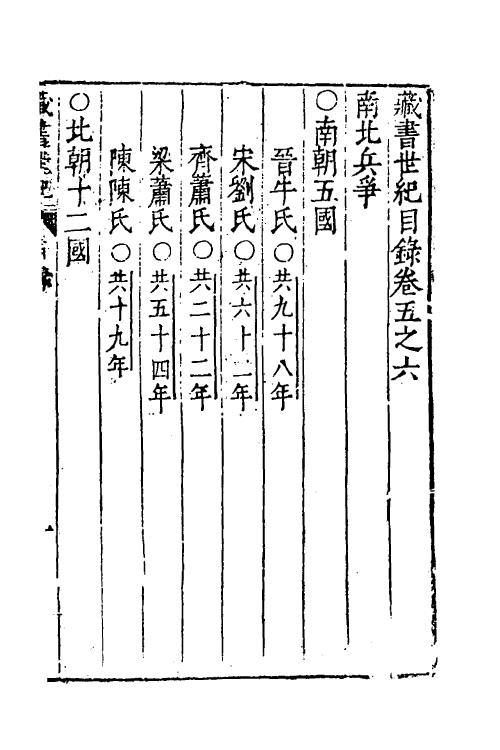 藏書世紀目錄卷五之六
南北兵爭
○南朝五國
晉牛氏○共九十八年
宋劉氏○共六十一年
齊蕭氏○共二十二年
梁蕭氏○共五十四年
陳陳氏○共十九年
○北朝十二國
藏書世紀